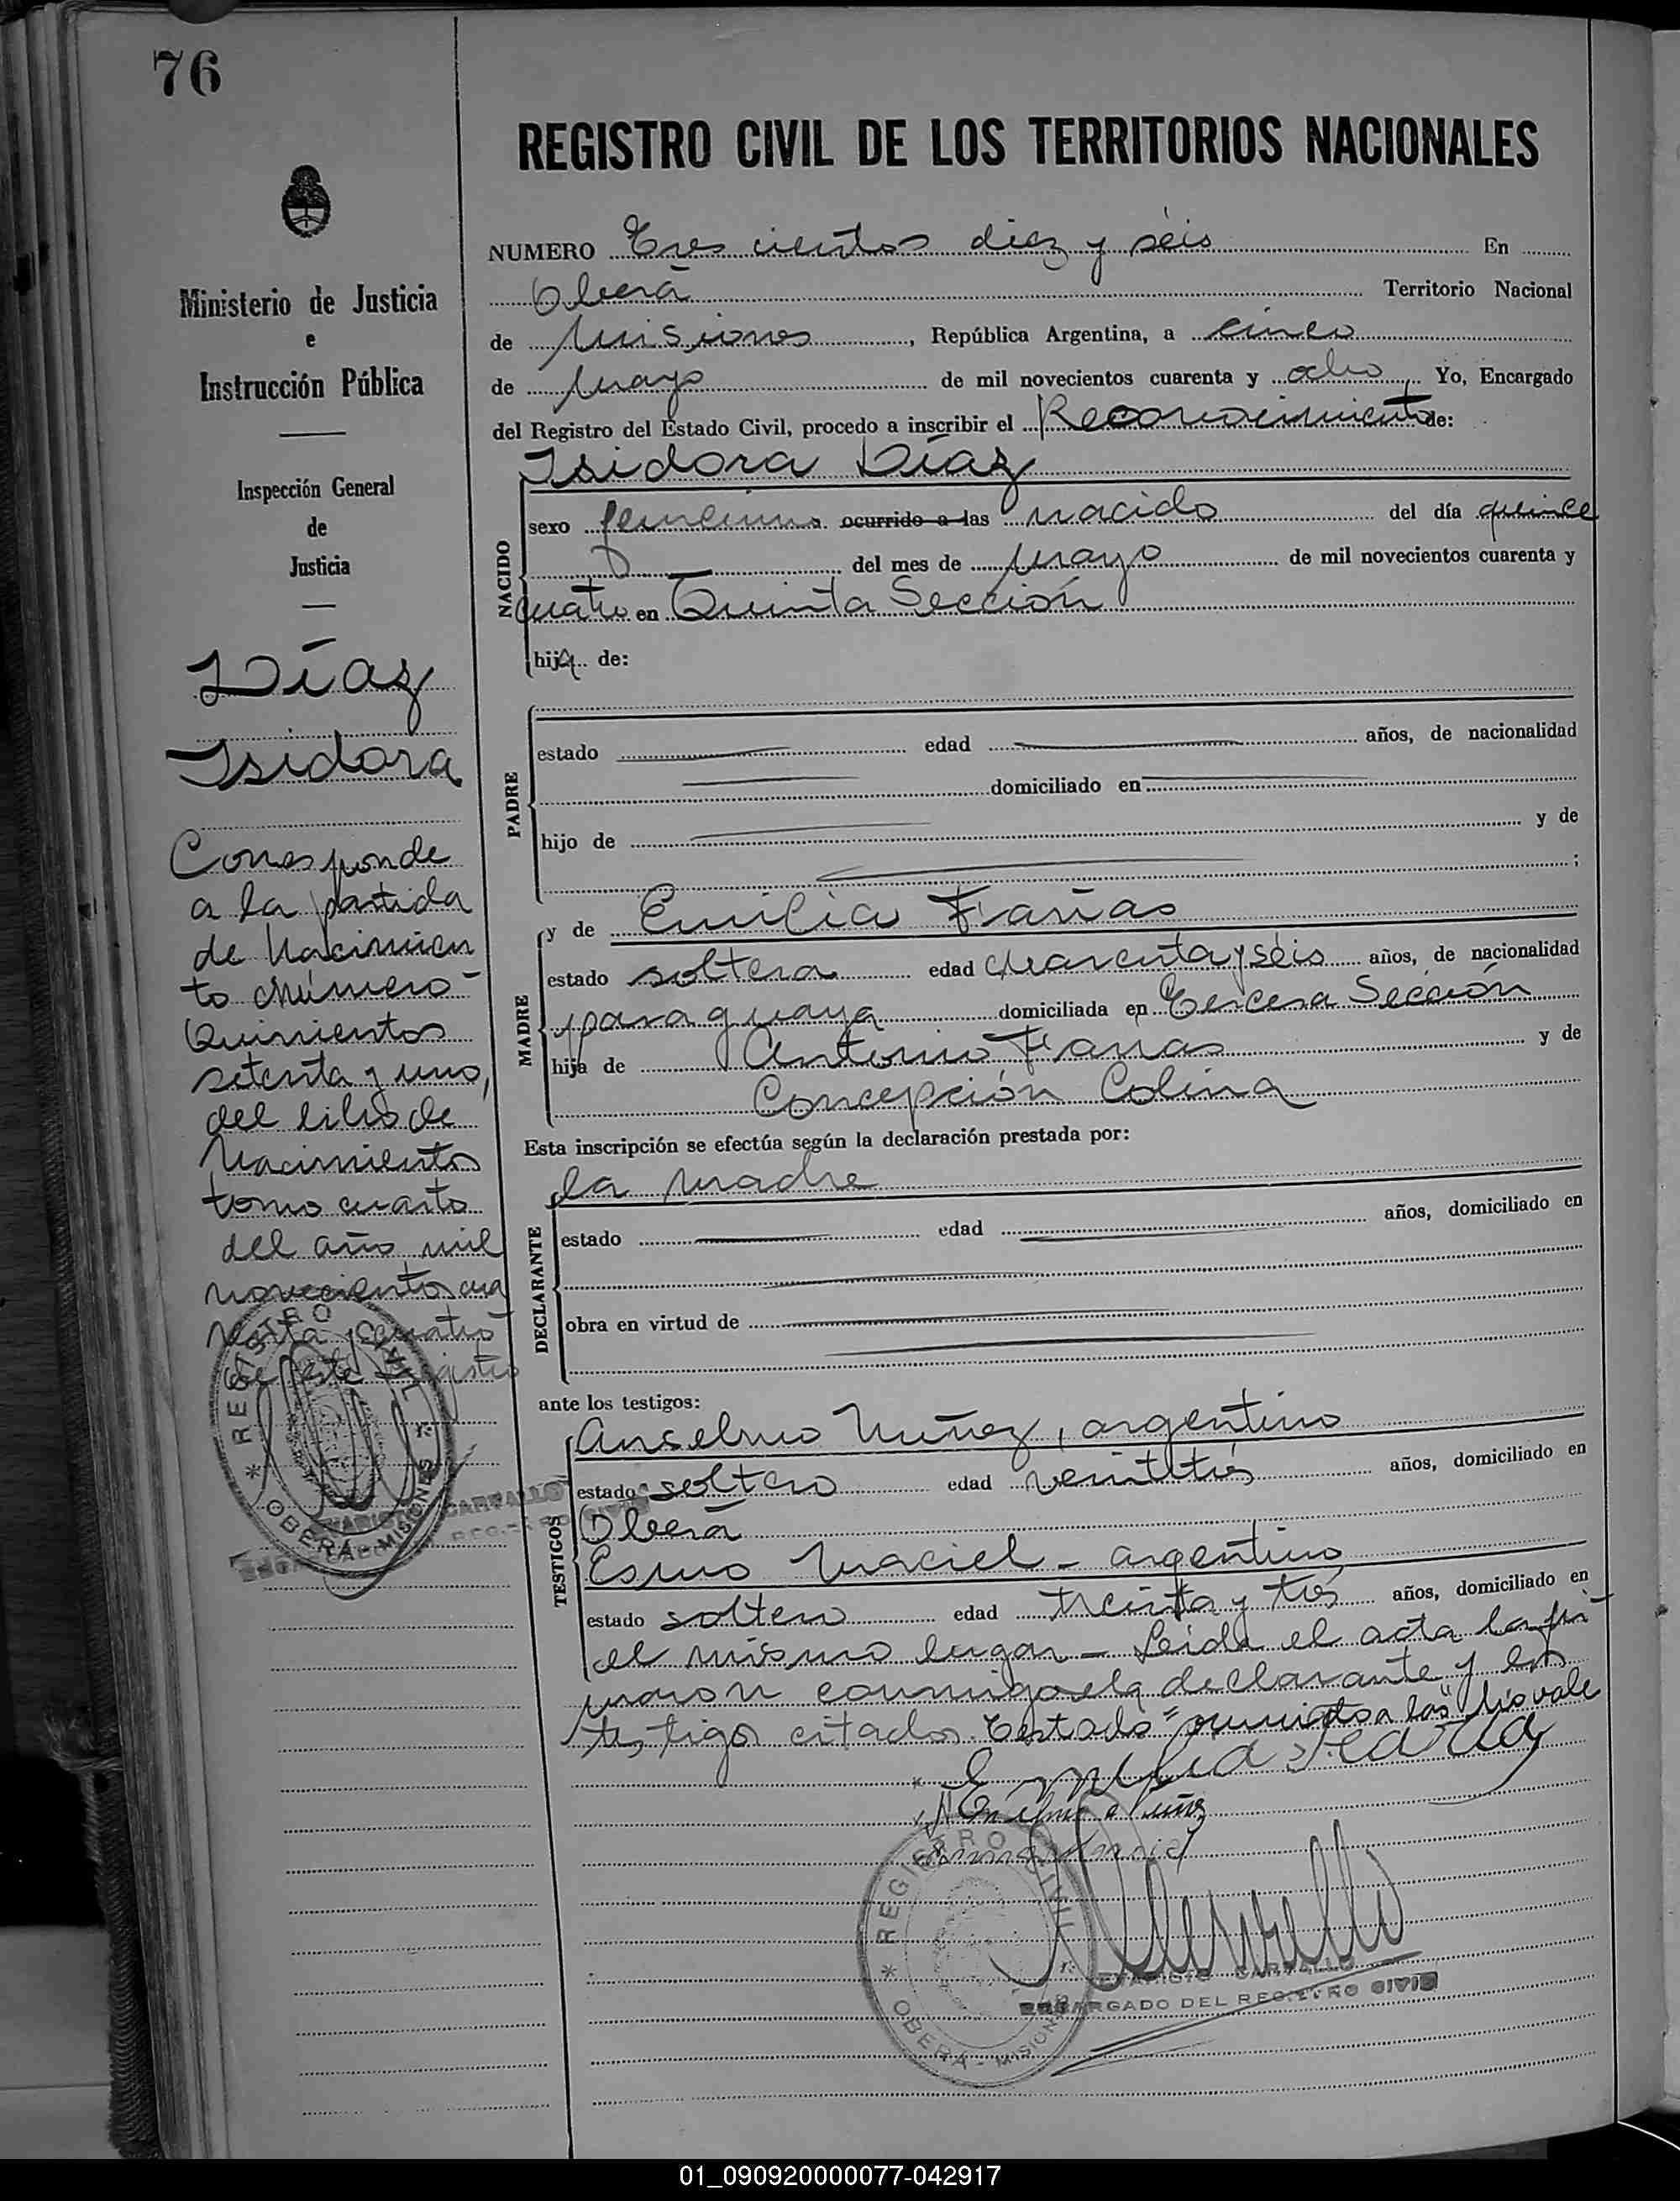 76
REGISTRO CIVIL DE LOS TERRITORIOS NACIONALES
Ministerio de Justicia
e
Instrucción Pública
Inspección General
de
Justicia
Díaz
Isidora
Corresponde
a la partida
de Nacimien
to Número
Quinientos
setenta y uno,
del libro de
Nacimientos
tomo cuarto
del año mil
novecientos cua
renta y cuatro
de este Registro
REGISTRO CIVIL
* OBERA - MISIONES
NUMERO Tres cientos diez y séis En
Oberá Territorio Nacional
de Misiones, República Argentina, a cinco
de Mayo de mil novecientos cuarenta y ocho, Yo, Encargado
del Registro del Estado Civil, procedo a inscribir el Reconocimiento de:
Isidora Díaz
NACIDO
sexo femenino ocurrido a las nacido del día quince
del mes de Mayo de mil novecientos cuarenta y
cuatro en Quinta Sección
hija de:
PADRE
estado edad años, de nacionalidad
domiciliado en
hijo de y de
;
MADRE
y de Emilia Farías
estado soltera edad cuarenta y séis años, de nacionalidad
paraguaya domiciliada en Tercera Sección
hija de Antonio Farías y de
Concepción Colina
Esta inscripción se efectúa según la declaración prestada por:
la madre
DECLARANTE
estado edad años, domiciliado en
obra en virtud de
ante los testigos:
TESTIGOS
Anselmo Nuñez, argentino
estado soltero edad veintitrés años, domiciliado en
Oberá
Esmo Maciel - argentino
estado soltero edad treinta y trés años, domiciliado en
el mismo lugar - Leída el acta la fir
maron conmigo la declarante y los
testigos citados. Testado "ocurrido a las" No vale
Emilia Farias
REGISTRO CIVIL
* OBERA - MISIONES
CARVALLO
ENCARGADO DEL REGISTRO CIVIL
01_090920000077-042917